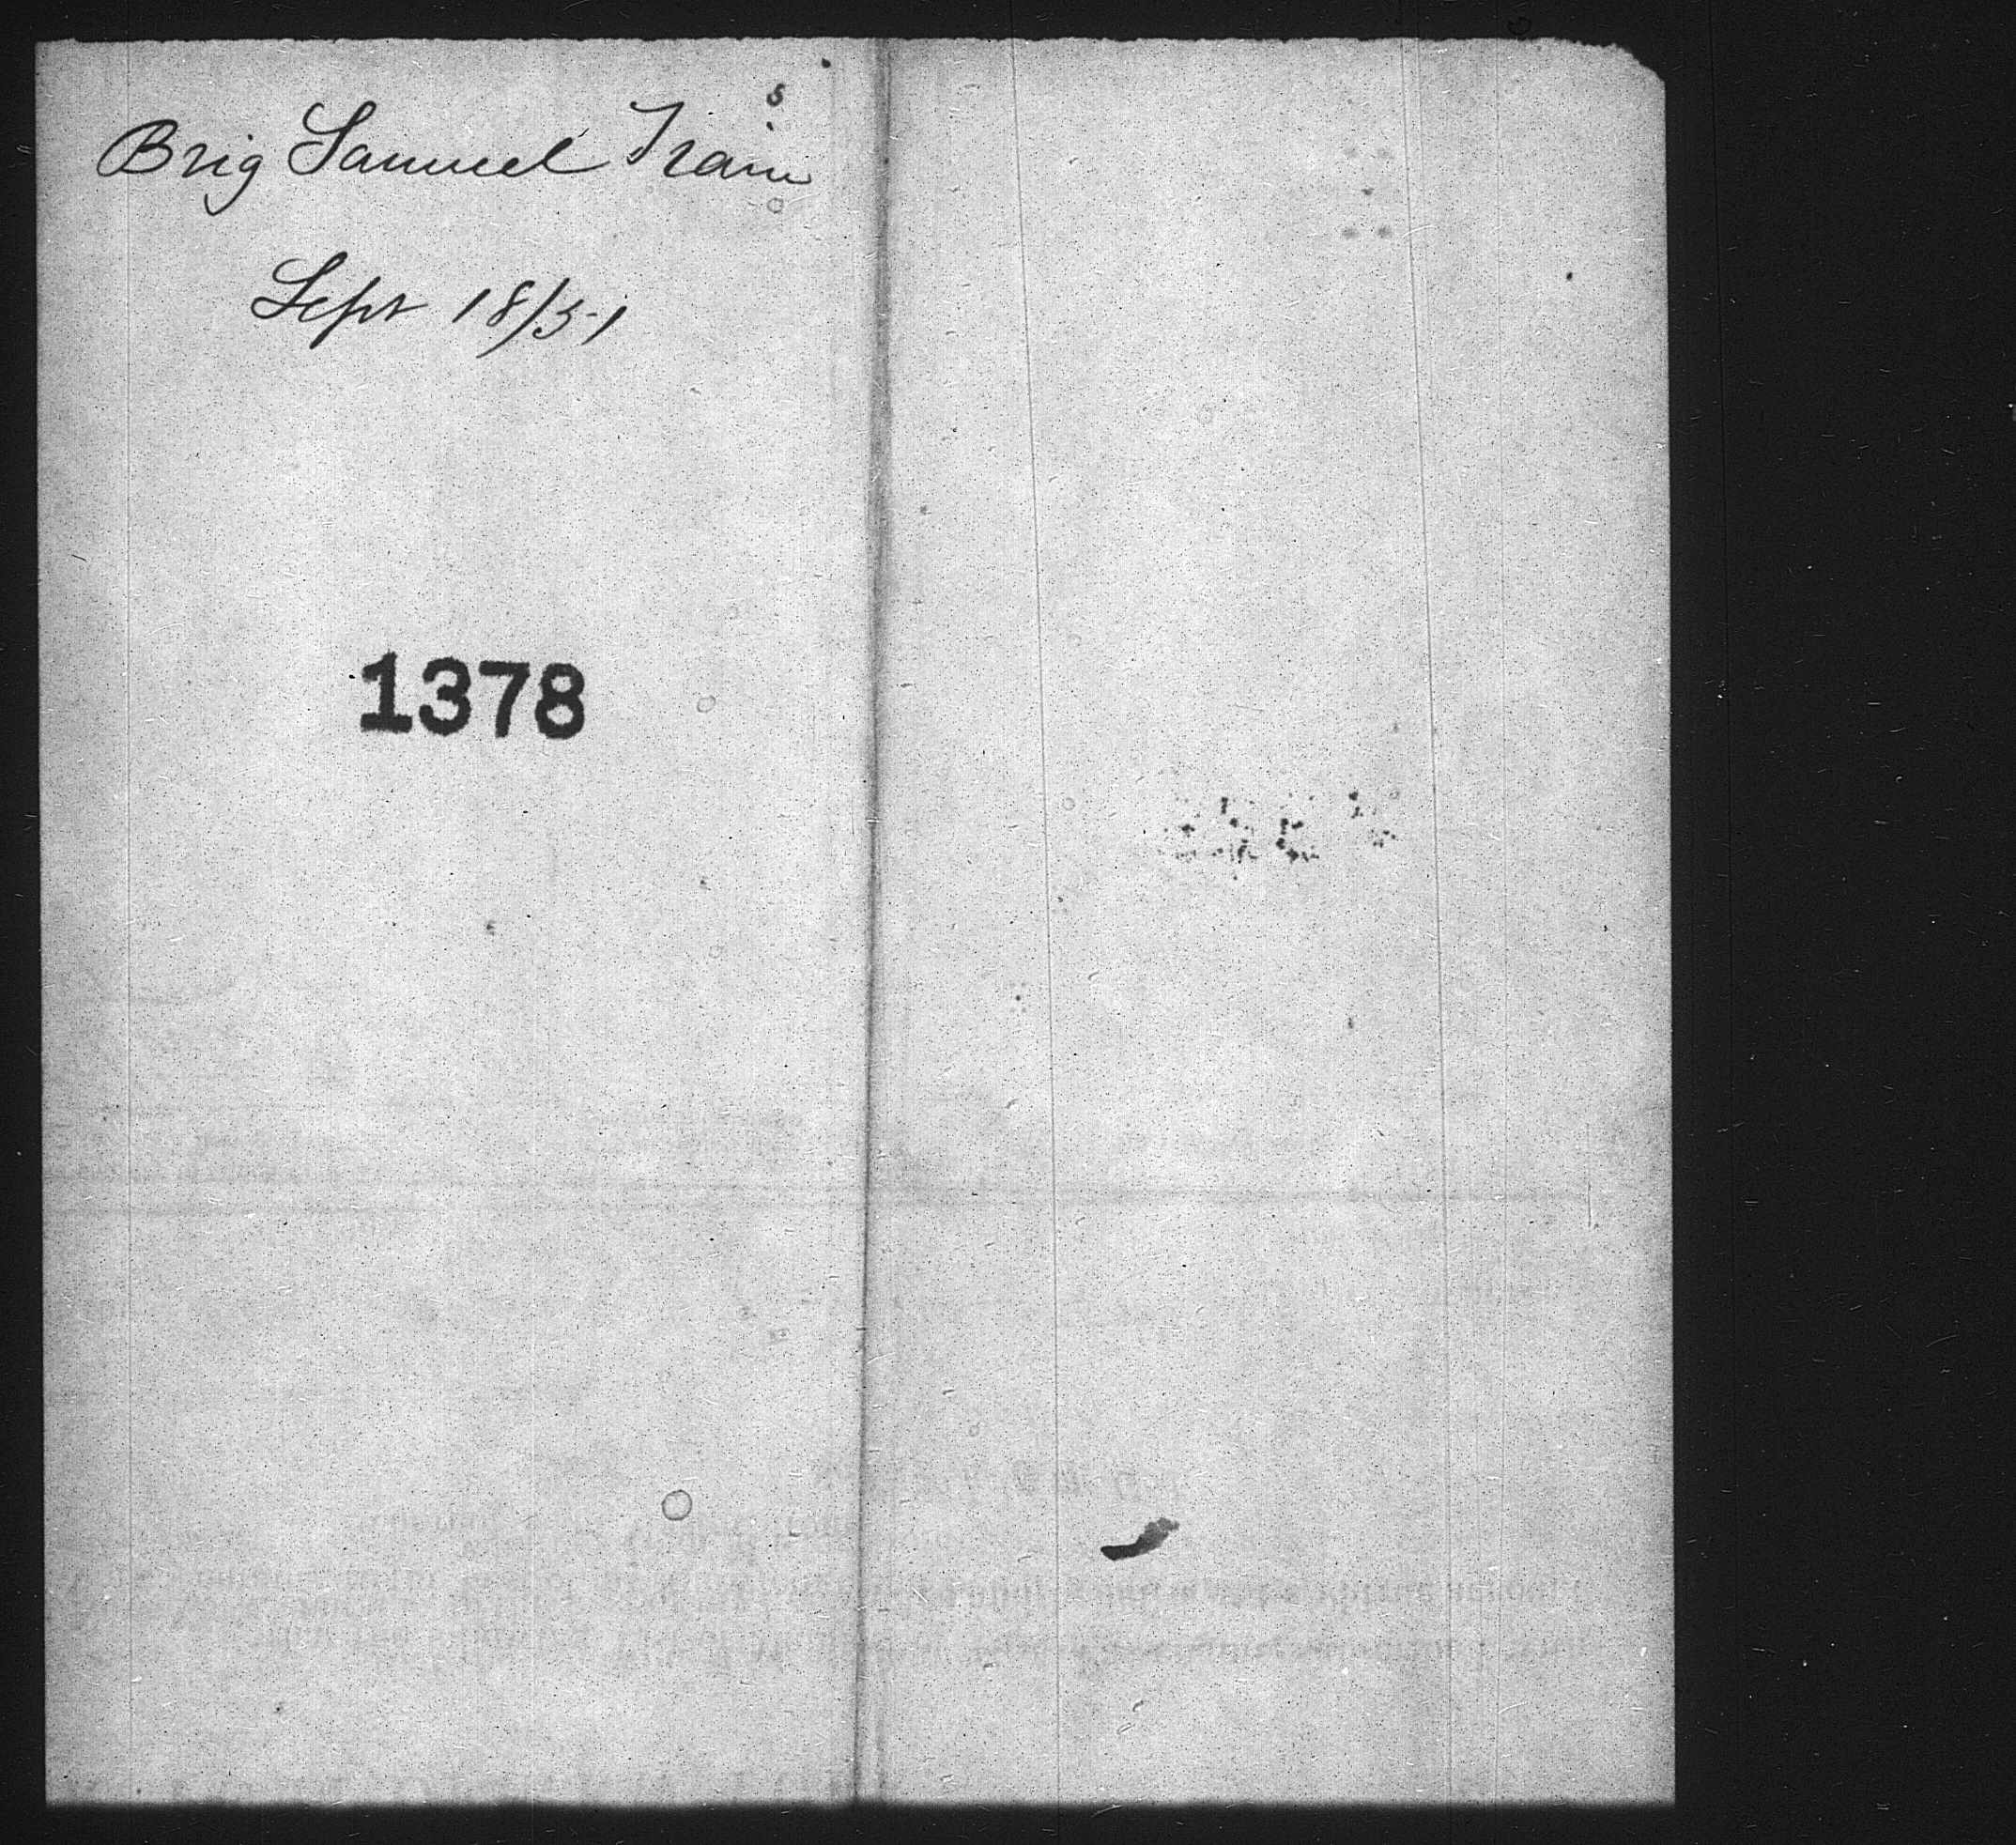 Brig Samuel Train
Sept 18/51
1378